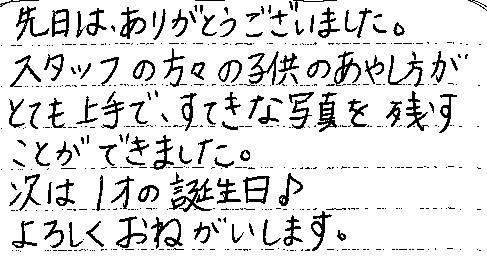 先日は、ありがとうございました。
スタッフの方々の子供のあやし方が
とても上手で、すてきな写真を残す
ことができました。
次は1才の誕生日♪
よろしくおねがいします。